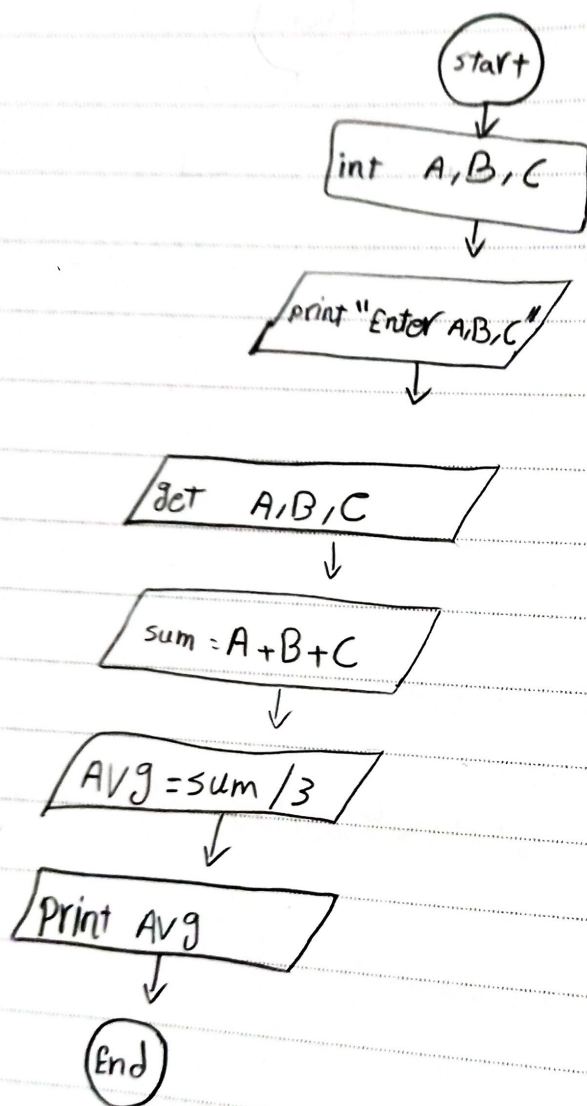 start
int A, B, C
print "Enter A,B,C"
get A,B,C
sum = A+B+C
AVg = sum / 3
Print AVg
End